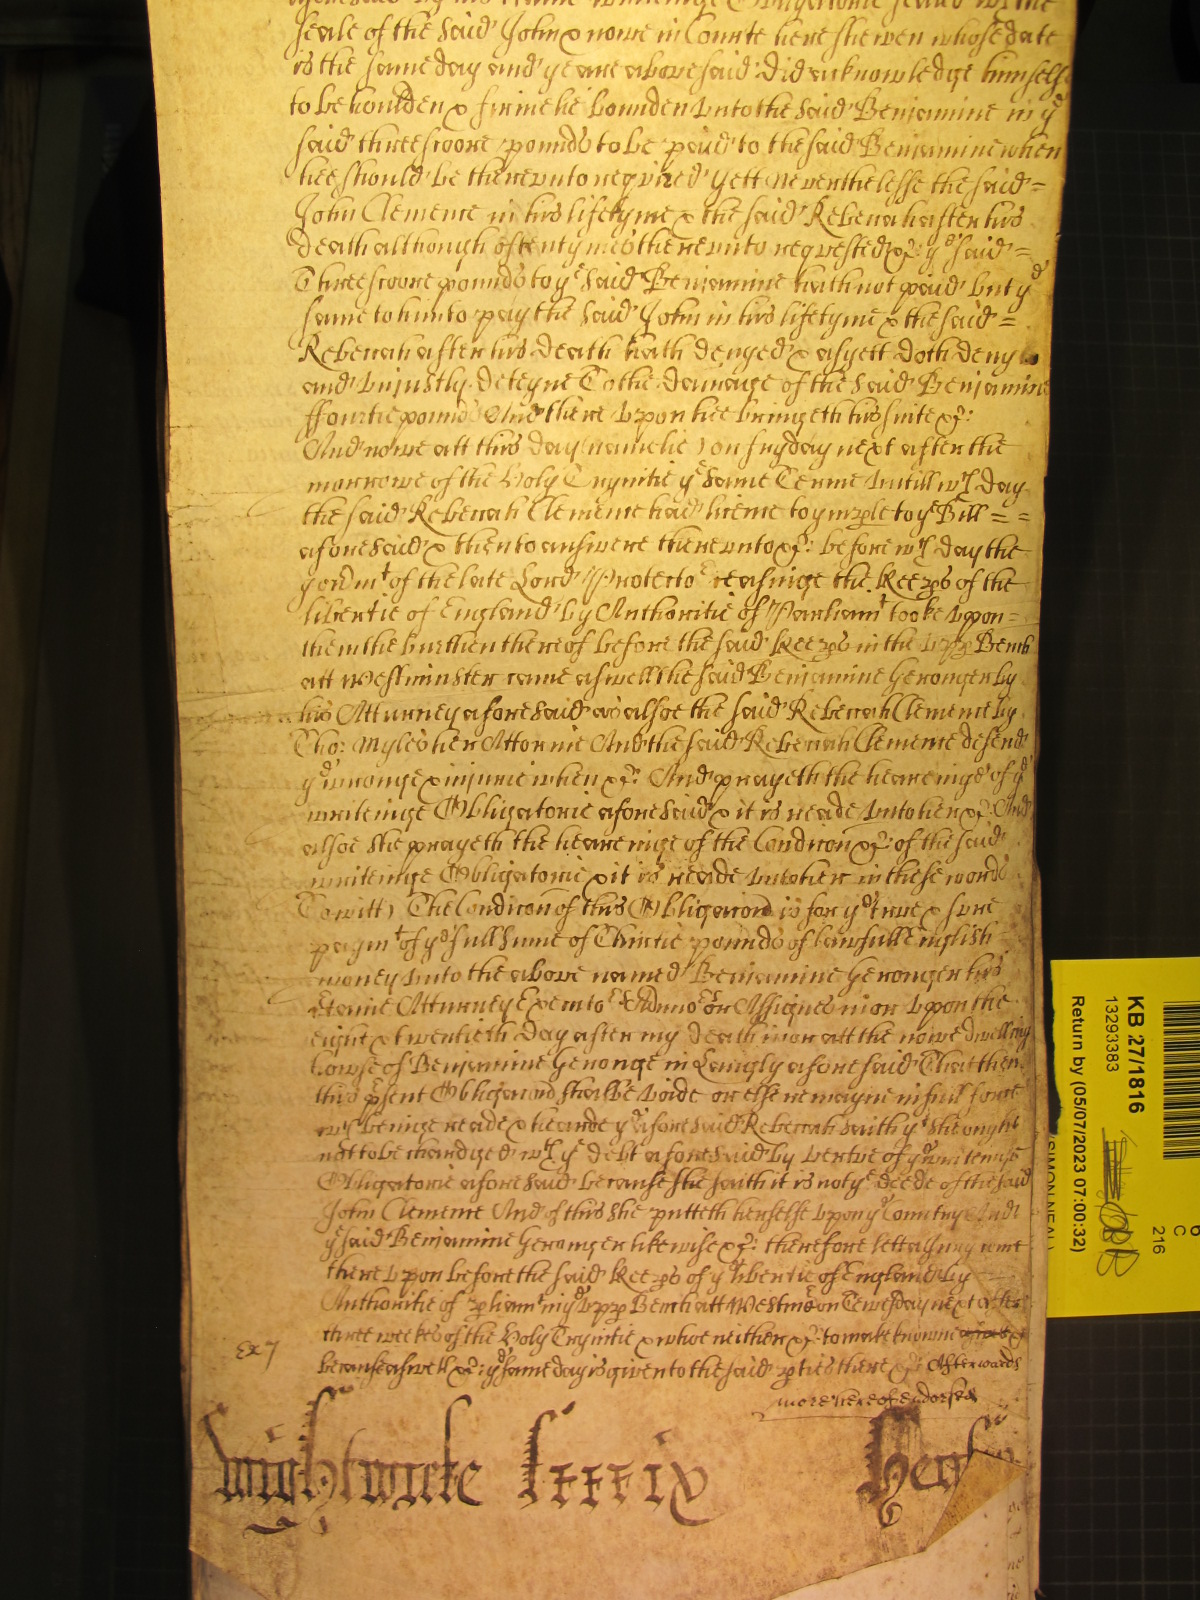 seale of the said John & nowe in Courte here shewen whose date
is the same day and yeare abovesaid did acknowledge himselfe
to be houlden & firmelie bounden unto the said Beniamine in yᵉ
said threescoore pounds to be paid to the said Beniamine when
hee should be thereunto required yett neverthelesse the said =
John Clemence in his lifetyme & the said Rebeccah after his
death although oftentymes thereunto requested &c: yᵉ said =
Threescoore pounds to yᵉ said Beniamine hath not paid but yᵉ
same to him to pay the said John in his lifetyme & the said =
Rebeccah after his death hath denyed & as yett doth deny
and uniustly deteyne To the damage of the said Beniamine
ffourtie pounds And thereupon hee bringeth his suite &c:
And nowe att this day (namelie) on fryday next after the
morrowe of the Holy Trynitie yᵉ same Terme untill wᶜʰ day
the said Rebeccah Clemence had licence to imparle to yᵉ Bill = =
aforesaid & then to answere thereunto &c: before wᶜʰ day the
govermᵗ of the late Lord Protectoʳ ceasinge the Keeꝑs of the
libertie of England by Authoritie of Parliamᵗ tooke upon =
them the burthen thereof before the said Keeꝑs in the upꝑ Bench
att Westminster came aswell the said Beniamine Geronger by
his Atturney aforesaid as alsoe the said Rebeccah Clemence by
Tho: Myles her Attornie And the said Rebeccah Clemence defendᵗʰ
yᵉ wronge & iniurie when &c: And prayeth the heareinge of yᵉ
writeinge Obligatorie aforesaid & it is reade unto her &c: And
alsoe she prayeth the heareinge of the Condicon &c: of the said
writeinge Obligatorie & it is reade unto her in these words
Towitt) The Condicon of this Obligacon is for yᵉ true & sure
paymᵗ of yᵉ full sume of Thirtie pounds of lawfull English
money unto the above named Beniamine Geronger his
Atturney Execut[oʳˢ] Admoʳˢ or Assignes in or upon the
eight & twentieth day after my death in or att the nowe dwelling
howse of Beniamine Geronge in aforesaid That then
this ꝑsent Obligacon shalbe voide or else remayne in full force
wᶜʰ beinge reade & hearde yᵉ aforesaid Rebeccah saith yᵗ she ought
not to be chardged wᵗʰ yᵉ debt aforesaid by vertue of yᵉ writeinge
Obligatorie aforesaid because she saith it is not yᵉ deede of the said
John Clemence And of this she putteth herselfe upon yᵉ Country And
yᵉ said Beniamine Geronger likewise &c: therefore lett a Jury come
thereupon before the said Keeꝑs of yᵉ libertie of England by
Authoritie of ꝑliamᵗ in yᵉ upꝑ Bench att Westmʳ on Tewesday next after
three weekes of the Holy Trynitie & whoe neither &c: to make knowne
because aswell &c: yᵉ same day is given to the said ꝑties there &c: Afterwards
Ex 7
more hereof endorsed
Wightwicke
Hen
KB 27/1816
13293383
Return by (05/07/2023 07:00:32)
(SIMON NEAL)
6
C
216